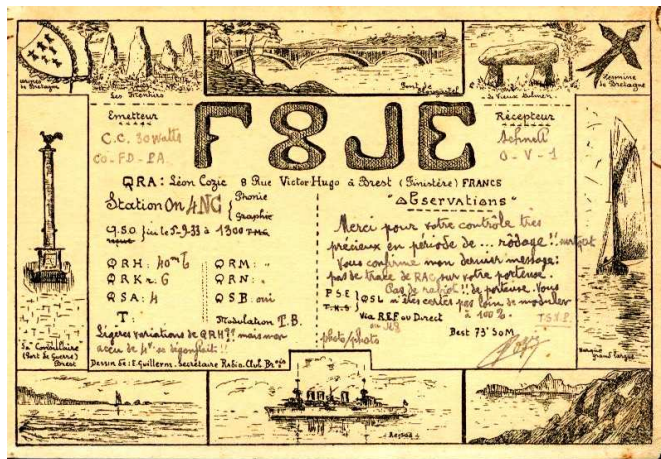 de Bretagne
Les Menhirs
Pont de
Le Vieux Dolmen
Hermine
de Bretagne
F8JE
Emetteur
C.C. 30 Watts
CO-FD-PA
Récepteur
Schnell
O-V-1
QRA: Léon Cozic 8 Rue Victor Hugo à Brest (Finistère) FRANCE
Station ON 4NC { Phonie
Graphie
Q.S.O. } le 5-9-33 à 1300 T.M.G.
QRH: 40m
QRK: 6
QSA: 4
T:
QRM: "
QRN: "
QSB: oui
Modulation T.B.
Légères variations de QRH?? mais mon
accu de 4v se dégonflait!!
"Observations"
Merci pour votre contrôle très
précieux en période de ... rodage!! surtout
Vous confirme mon dernier message:
pas de trace de RAC sur votre porteuse.
Pas de rabiot!! de porteuse. Vous
n'êtes certes pas loin de moduler
à 100%.
PSE } QSL
TKS
Via REF ou Direct
photo/photo
Best 73's OM
La Consulaire
(Port de Guerre)
Brest
Dessin de: E. Guillerm. Secrétaire Radio-Club